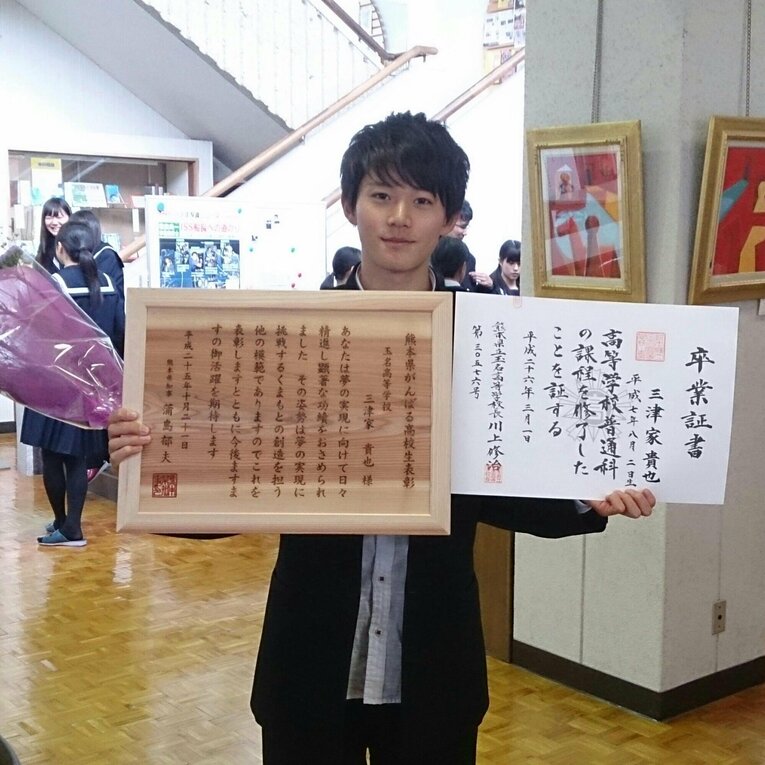 熊本県がんばる高校生表彰
玉名高等学校
三津家 貴也 様
あなたは夢の実現に向けて日々
精進し顕著な功績をおさめられ
ました その姿勢は夢の実現に
挑戦するくまもとの創造を担う
他の模範でありますのでこれを
表彰しますとともに今後ますま
すの御活躍を期待します
平成二十五年十月二十一日
熊本県知事 蒲島郁夫
卒業証書
三津家貴也
平成七年八月二日生
高等学校普通科
の課程を修了した
ことを証する
平成二十六年三月一日
熊本県立玉名高等学校長 川上修治
第三〇五七六号